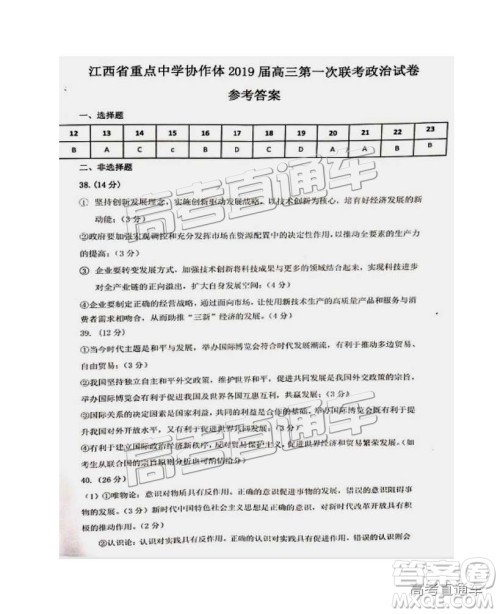 江西省重点中学协作体 2019 届高三第一次联考政治试卷
参考答案
一、选择题
12 13 14 15 16 17 18 19 20 21 22 23
B A C c B D C D A A B B
二、非选择题
38. (14 分)
① 坚持创新发展理念，实施创新驱动发展战略，以技术创新培育新产品，有好经济发展的新
动能；(3 分)
②政府要加强宏观调控和充分发挥市场在资源配置中的决定性作用，以推动主要的生产力
的提高；(3 分)
③ 企业要转变发展方式，加强技术创新将科技成果与更多市场需求相结合，促进跨界资源对
全产业链的正向溢出，扩大自身发展空间；(4 分)
④企业要制定正确的经营战略，通过大数据，云计算等新技术提供高质量产品和服务与消
费者需求相吻合，从而助推“三新”经济的发展。(4 分)
39. (12 分)
①当今时代主题是和平与发展，举办国际博览会符合时代潮流，有利于推动经济全球化，自
由贸易；(3 分)
②我国坚持独立自主和平外交政策，维护世界和平，促进共同发展的外交政策宗旨，
举办国际博览会有利于促进我国及世界各国互惠互利，共同发展；(3 分)
③国际关系的决定因素是国家利益，共同的利益是合作的基础。(2 分)
④有利于建立国际政治经济新秩序，反对贸易保护主义，促进世界经济和贸易繁荣发展。(如
考生从联合国的宗旨原则分析也可酌情给分)(4 分)
40. (26 分)
(1) ①唯物论：意识对物质具有反作用，正确的意识促进事物的发展，对事物发展具有积极
的推动作用。(2 分) 新时代中国特色社会主义思想是正确的意识，对新时代改革开放具有积
极的推动作用。(2 分)
②认识论：认识对实践具有反作用，正确的认识对实践具有促进作用，错误的认识则会
高考直通车
高考直通车
高考直通车
高考直通车
答案圈
MXQE.COM